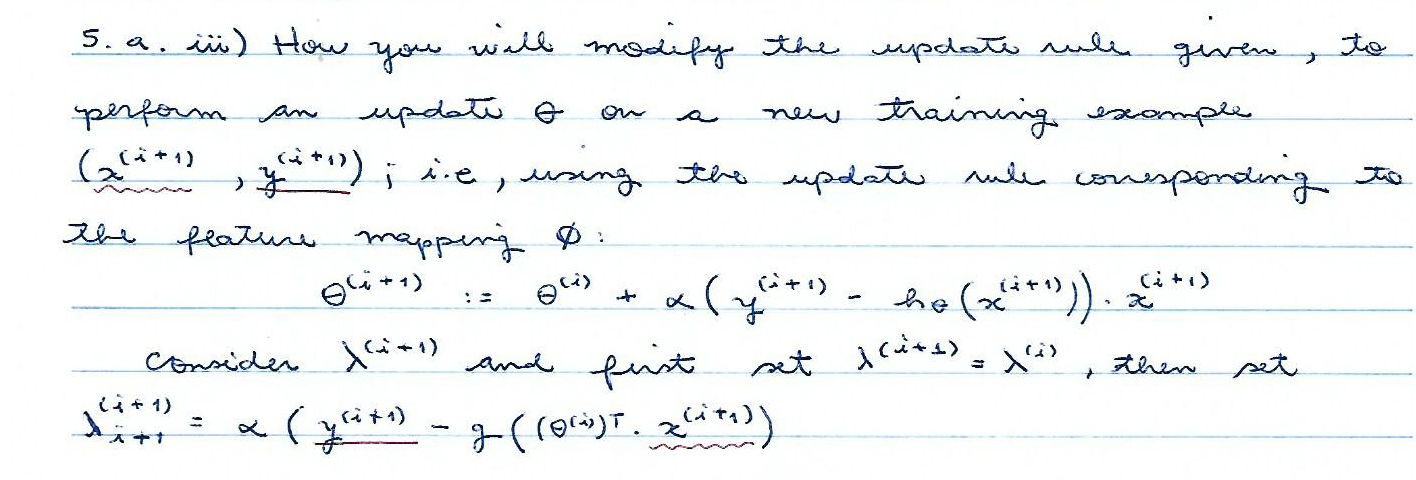 5. a. iii) How you will modify the update rule given, to
perform an update θ on a new training example
(x^(i+1), y^(i+1)); i.e, using the update rule corresponding to
the feature mapping Φ:
θ^(i+1) := θ^(i) + α(y^(i+1) - hθ(x^(i+1))).x^(i+1)
Consider λ^(i+1) and first set λ^(i+1) = λ^(i), then set
λ_{i+1}^(i+1) = α(y^(i+1) - g((θ^(i))^T. x^(i+1))